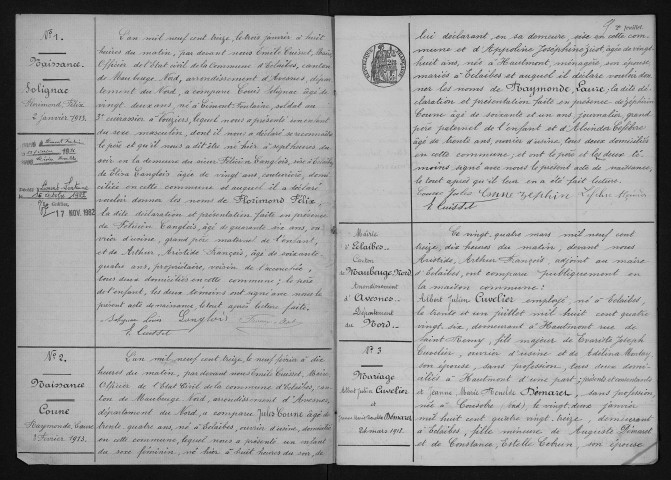 N° 1.
Naissance.
Solignac
Florimond Félix
2 janvier 1913.
17 NOV. 1982
L'an mil neuf cent treize, le trois janvier à huit
heures du matin, par devant nous Emile Cuisset, Maire
Officier de l'Etat Civil de la Commune d'Eclaibes, canton
de Maubeuge Nord, arrondissement d'Avesnes, dépar-
tement du Nord, a comparu Louis Solignac âgé de
vingt deux ans, né à soldat au
3e cuirassier à lequel nous a présenté un enfant
du sexe masculin, dont il nous a déclaré se reconnaître
le père et qu'il nous a dit être né hier à sept heures du
soir en la demeure du sieur Félicien Langlois, sise à Eclaibes
de Langlois âgée de vingt ans, couturière, domi-
ciliée en cette commune et auquel il a déclaré
vouloir donner les noms de Florimond Félix
la dite déclaration et présentation faites en présence
de Félicien Langlois, âgé de quarante six ans, ou-
vrier d'usine, grand père maternel de l'enfant,
et de Arthur, Aristide François, âgé de soixante-
quatre ans, propriétaire, voisin de l'accouchée,
tous deux domiciliés en cette commune; le père
de l'enfant, les deux témoins ont signé avec nous le
présent acte de naissance, le tout après lecture faite.
Solignac Louis Langlois
E. Cuisset
N° 2.
Naissance
Coune
Raymonde, Laure
1 Février 1913.
L'an mil neuf cent treize, le neuf février à dix
heures du matin, par devant nous Emile Cuisset, Maire
Officier de l'Etat Civil de la commune d'Eclaibes, can-
ton de Maubeuge Nord, arrondissement d'Avesnes,
département du Nord, a comparu Jules Coune âgé de
trente quatre ans, né à Eclaibes, ouvrier d'usine, domicilié
en cette commune, lequel nous a présenté un enfant
du sexe féminin, né hier à huit heures du soir, de
2e feuillet.
lui déclarant, en sa demeure, sise en cette com-
mune et d'Appoline Joséphine âgée de vingt
huit ans, née à Hautmont, ménagère son épouse
mariés à Eclaibes et auquel il a déclaré vouloir don-
ner les noms de Raymonde, Laure, la dite dé-
claration et présentation faites en présence de Zéphirin
Coune âgé de soixante et un ans, journalier, grand
père paternel de l'enfant et d'Alcindor Lefebvre
âgé de trente ans, ouvrier d'usine, tous deux domiciliés
en cette commune; et ont le père et les deux té-
moins signé avec nous le présent acte de naissance,
le tout après qu'il leur en a été fait lecture.
Coune Jules Coune Zéphirin
E. Cuisset
Mairie
d'Eclaibes.
Canton
de Maubeuge Nord
Arrondissement
d'Avesnes.
Département
du Nord.
N° 3
Mariage
Albert Julien Cuvelier
et
Démaret
24 mars 1913.
Le vingt quatre mars mil neuf cent
treize, dix heures du matin, devant nous
Aristide, Arthur François, adjoint au maire
d'Eclaibes, ont comparu publiquement en
la maison commune:
Albert Julien Cuvelier employé, né à Eclaibes,
le trente et un juillet mil huit cent quatre
vingt six, demeurant à Hautmont rue de
Saint Remy, fils majeur de Evariste Joseph
Cuvelier, ouvrier d'usine et de Edelina
son épouse, sans profession, tous deux domi-
ciliés à Hautmont d'une part; présents et consentants
et Jeanne Démaret, sans profession
née à Cousolre (Nord) le vingt deux janvier
mil huit cent quatre vingt treize, demeurant
à Eclaibes, fille mineure de Auguste Démaret
et de Constance, Estelle son épouse